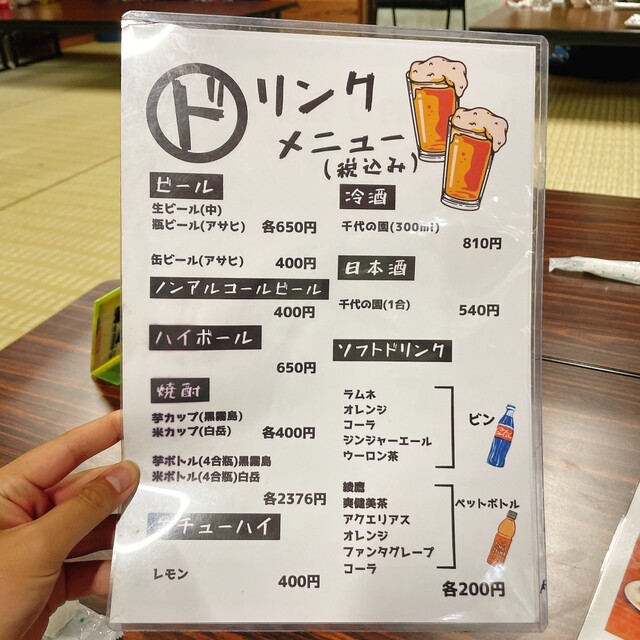 ドリンク
メニュー
(税込み)
ビール
生ビール(中)
瓶ビール(アサヒ) 各650円
缶ビール(アサヒ) 400円
ノンアルコールビール
400円
ハイボール
650円
焼酎
芋カップ(黒霧島)
米カップ(白岳) 各400円
芋ボトル(4合瓶)黒霧島
米ボトル(4合瓶)白岳
各2376円
チューハイ
レモン 400円
冷酒
千代の園(300ml)
810円
日本酒
千代の園(1合) 540円
ソフトドリンク
ラムネ
オレンジ
コーラ
ジンジャーエール
ウーロン茶
ビン
綾鷹
爽健美茶
アクエリアス
オレンジ
ファンタグレープ
コーラ
ペットボトル
各200円